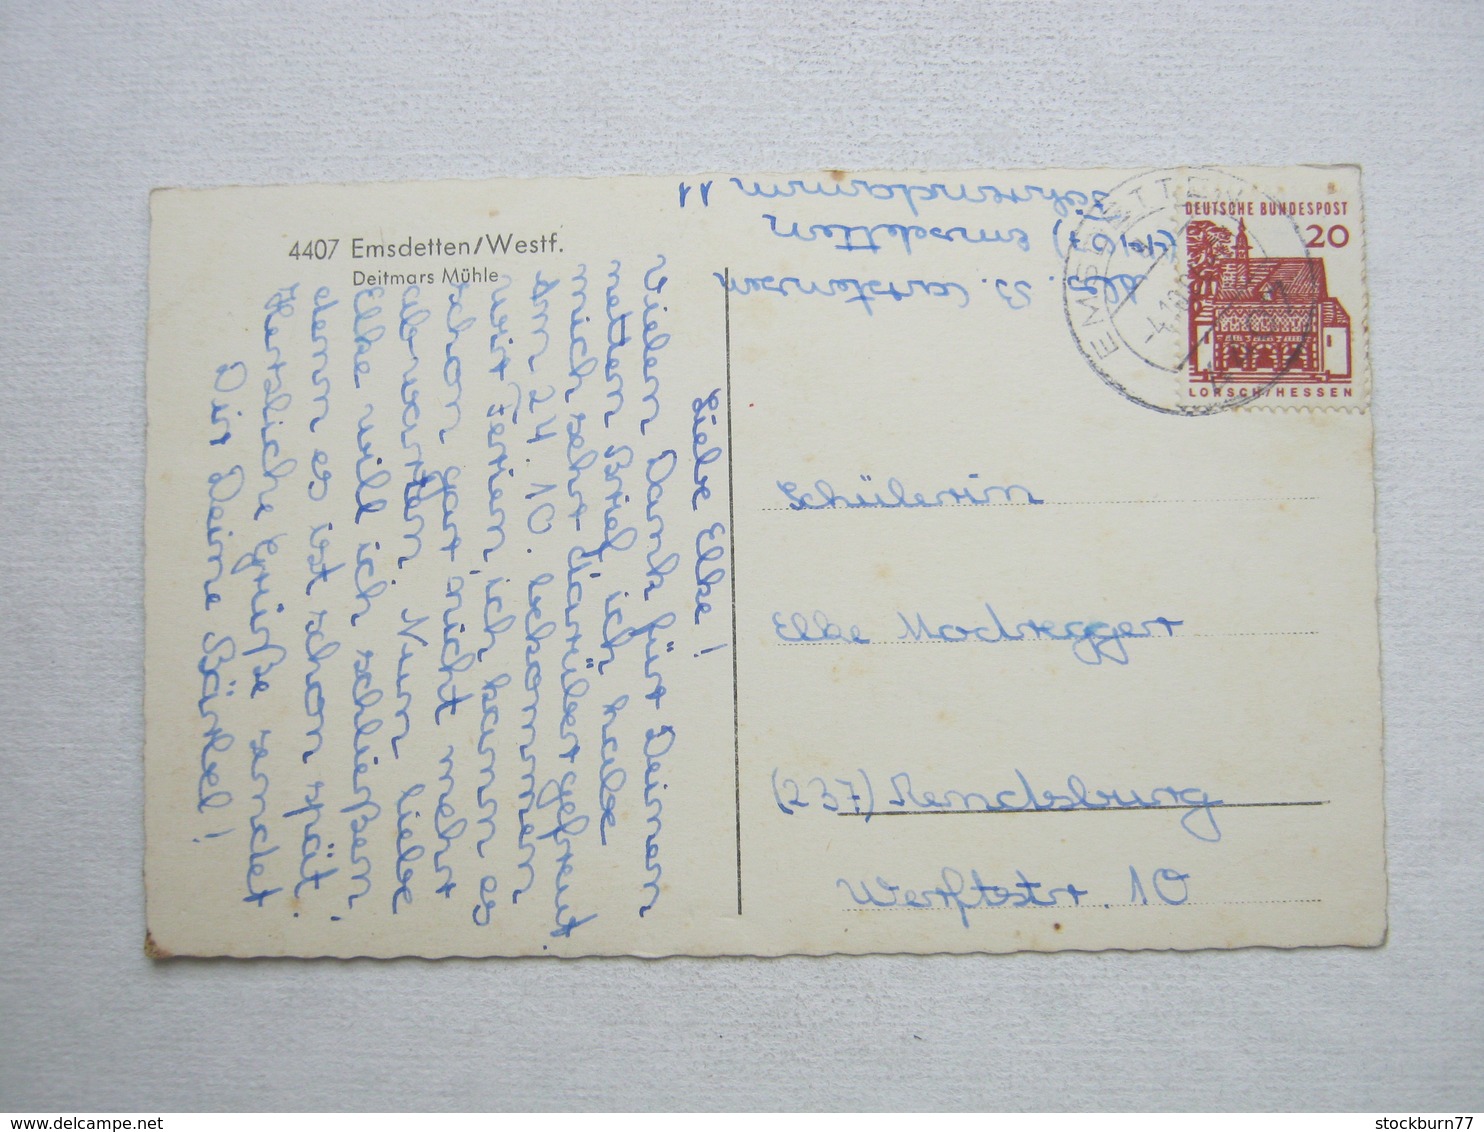 4407 Emsdetten/Westf.
Deitmars Mühle
Liebe Elke!
Vielen Dank für Deinen
netten Brief, ich habe
mich sehr darüber gefreut.
Am 24.10. bekommen
wir Ferien, ich kann es
schon gar nicht mehr
abwarten. Nun liebe
Elke will ich schließen
denn es ist schon spät.
Herzliche Grüße sendet
Dir Deine Bärbel!
Abs. B. Carstensen
(4407) Emsdetten
11
DEUTSCHE BUNDESPOST
20
LORSCH/HESSEN
EMSDETTEN
Schülerin
Elke Modregger
(237) Rendsburg
Werftstr. 10
stockburn77